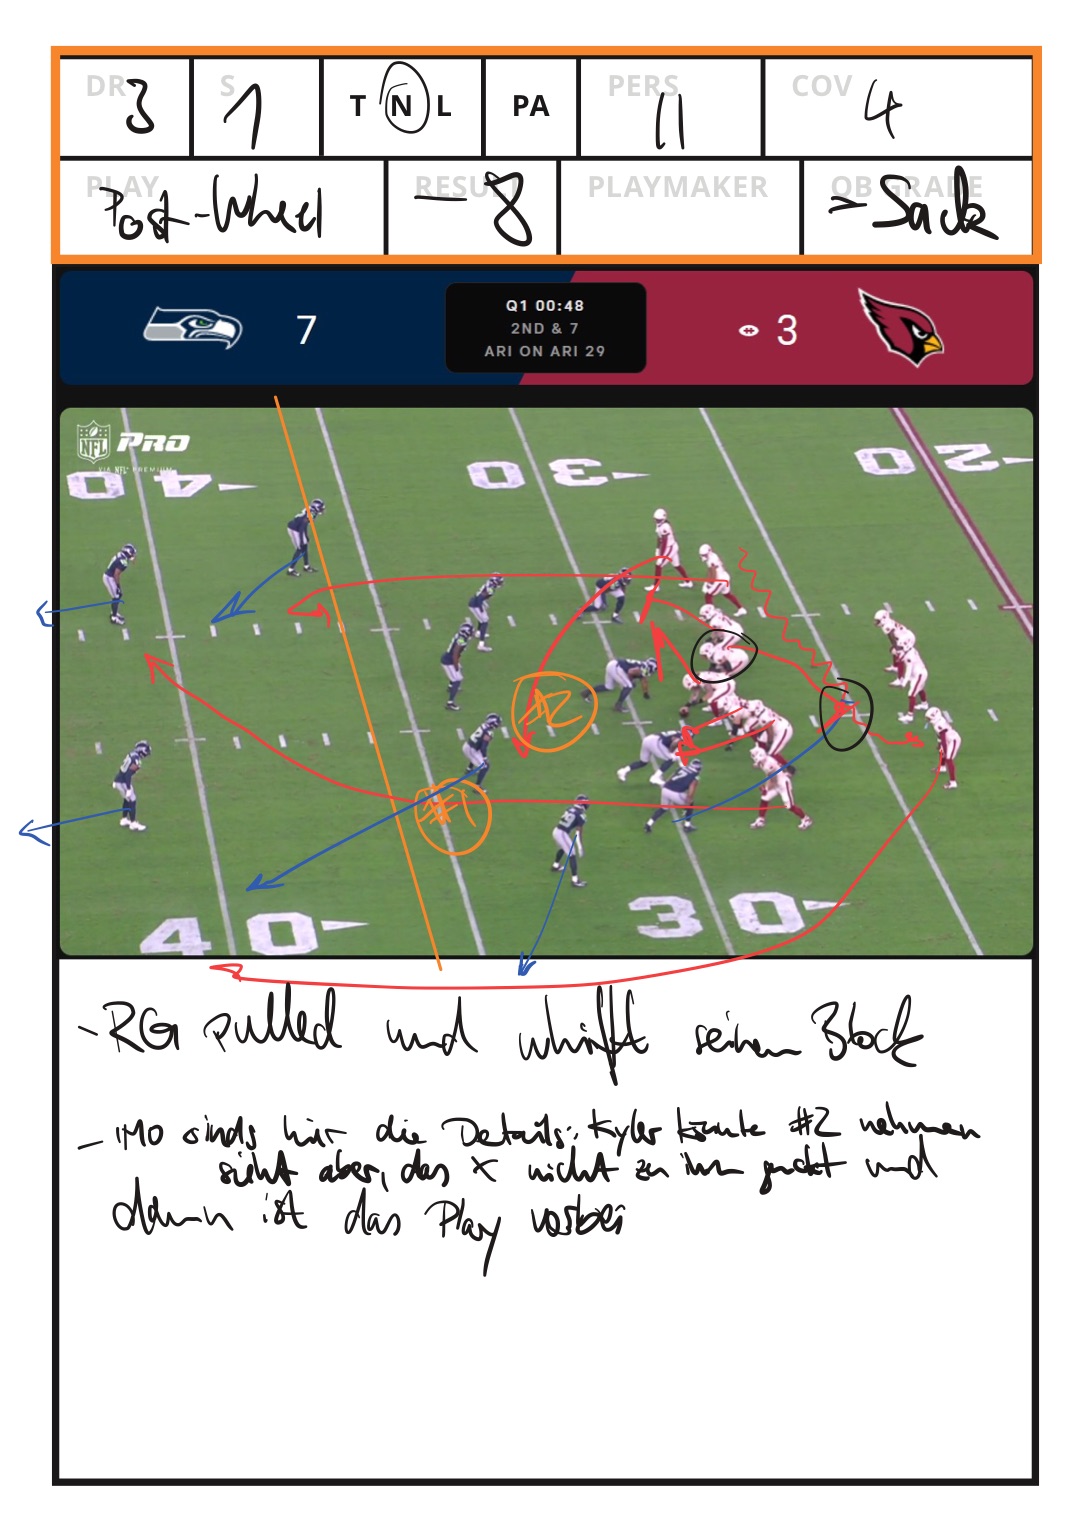 DR 3 S 1 T N L PA PERS 11 COV 4
PLAY Post-Wheel RESULT -8 PLAYMAKER QB GRADE = Sack
7 Q1 00:48 3
2ND & 7
ARI ON ARI 29
NFL PRO
VIA NFL+ PREMIUM
40 30 20
#2
#1
40 30
- RG pulled und whifft seinen Block
- IMO sinds hier die Details: Kyler könnte #2 nehmen
sieht aber, das X nicht zu ihm guckt und
dann ist das Play vorbei